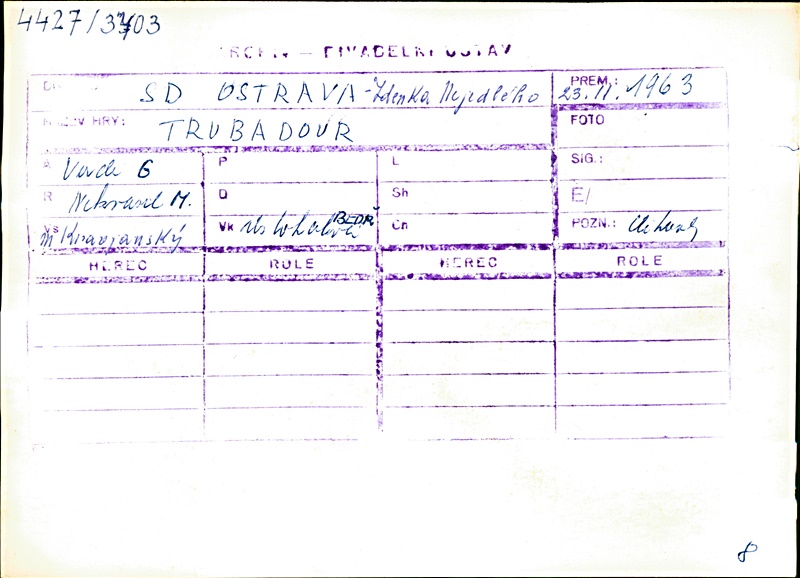 4427/3703
ARCHIV – DIVADELNÍ ÚSTAV
SD OSTRAVA - Zdeňka Nejedlého
PREM.: 23. II. 1963
NÁZEV HRY: TRUBADOUR
FOTO
A Verdi G
P
L
SIG.:
R Nekvasil M.
D
Sh
E/
VS Kravjanský
Vk
BEDŘ
Cn
POZN.:
HEREC ROLE HEREC ROLE
8